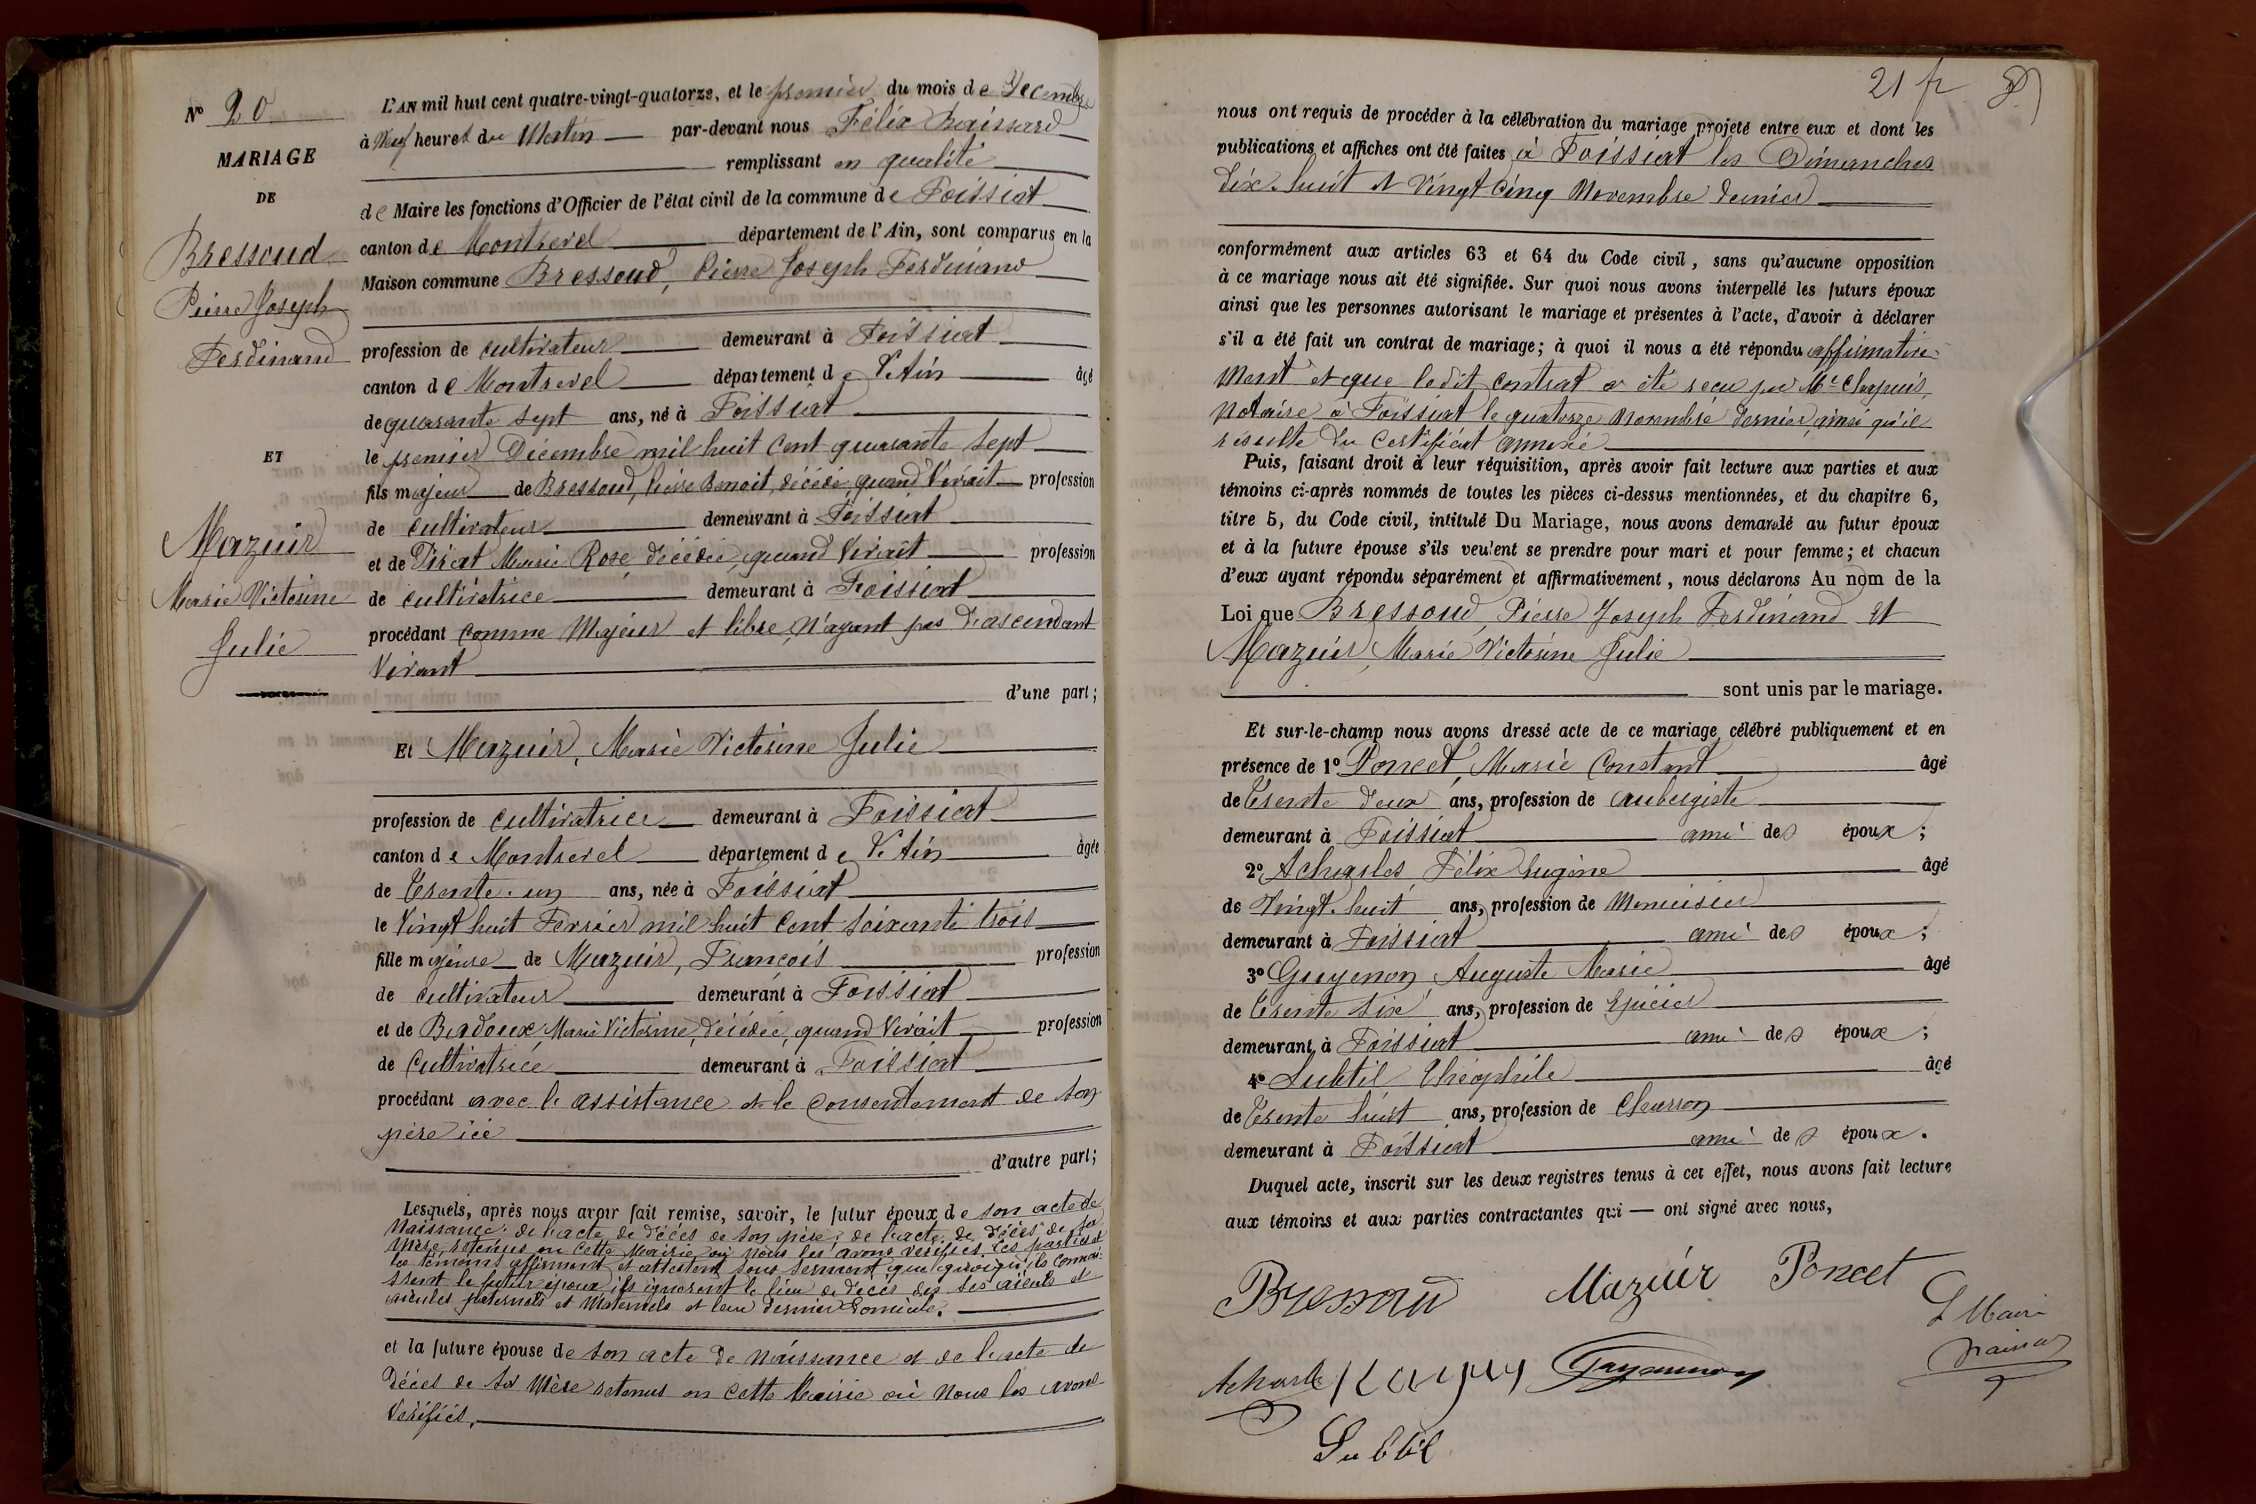 N° 20
MARIAGE
DE
Bressoud
Pierre Joseph
Ferdinand
ET
Mazuir
Marie Victorine
Julie
L'AN mil huit cent quatre-vingt-quatorze, et le premier du mois de Décembre
à Neuf heures du Matin par-devant nous Félix
remplissant en qualité
de Maire les fonctions d'Officier de l'état civil de la commune de Foissiat
canton de Montrevel département de l'Ain, sont comparus en la
Maison commune Bressoud, Pierre Joseph Ferdinand
profession de cultivateur demeurant à Foissiat
canton de Montrevel département de l'Ain âgé
de quarante sept ans, né à Foissiat
le premier Décembre mil huit cent quarante sept
fils majeur de Bressoud, Pierre Benoit, décédé, quand Vivait profession
de cultivateur demeurant à Foissiat
et de Pirat Marie Rose, décédée, quand Vivait profession
de cultivatrice demeurant à Foissiat
procédant comme Majeur et libre, N'ayant pas d'ascendant
Vivant
d'une part;
Et Mazuir, Marie Victorine Julie
profession de cultivatrice demeurant à Foissiat
canton de Montrevel département de l'Ain âgée
de Trente-un ans, née à Foissiat
le Vingt huit Fevrier mil huit Cent Soixante trois
fille majeure de Mazuir, François profession
de cultivateur demeurant à Foissiat
et de Badoux Marie Victorine, décédée, quand Vivait profession
de Cultivatrice demeurant à Foissiat
procédant avec l'assistance et le Consentement de son
père ici
d'autre part;
Lesquels, après nous avoir fait remise, savoir, le futur époux de son acte de
Naissance, de l'acte de décès de son père, de l'acte de décès de sa
Mère, retenus en cette Mairie où Nous les avons vérifiés. Les parties et
les témoins affirment et attestent sous serment que quoiqu'ils connai-
ssent le futur époux, ils ignorent le lieu de décès des ses aïeuls et
aïeules paternels et Maternels et leur dernier domicile.
et la future épouse de son acte de Naissance et de l'acte de
Décès de sa Mère retenus en cette Mairie où Nous les avons
Vérifiés.
21 fr
nous ont requis de procéder à la célébration du mariage projeté entre eux et dont les
publications et affiches ont été faites à Foissiat les Dimanches
dix-huit et Vingt Cinq Novembre dernier
conformément aux articles 63 et 64 du Code civil, sans qu'aucune opposition
à ce mariage nous ait été signifiée. Sur quoi nous avons interpellé les futurs époux
ainsi que les personnes autorisant le mariage et présentes à l'acte, d'avoir à déclarer
s'il a été fait un contrat de mariage; à quoi il nous a été répondu affirmative-
ment et que ledit contrat a été reçu par Me Chapuis,
Notaire à Foissiat le quatorze Novembre dernier, ainsi qu'il
résulte du Certificat annexé
Puis, faisant droit à leur réquisition, après avoir fait lecture aux parties et aux
témoins ci-après nommés de toutes les pièces ci-dessus mentionnées, et du chapitre 6,
titre 5, du Code civil, intitulé Du Mariage, nous avons demandé au futur époux
et à la future épouse s'ils veulent se prendre pour mari et pour femme; et chacun
d'eux ayant répondu séparément et affirmativement, nous déclarons Au nom de la
Loi que Bressoud, Pierre Joseph Ferdinand Et
Mazuir, Marie Victorine Julie
sont unis par le mariage.
Et sur-le-champ nous avons dressé acte de ce mariage célébré publiquement et en
présence de 1° Poncet, Marie Constant âgé
de Trente deux ans, profession de aubergiste
demeurant à Foissiat ami des époux;
2° Acharles Félix Eugène âgé
de Vingt-huit ans, profession de Menuisier
demeurant à Foissiat ami des époux;
3° Guyenon, Auguste Marie âgé
de Trente six ans, profession de Epicier
demeurant à Foissiat ami des époux;
4° Subtil Théophile âgé
de Trente huit ans, profession de Charron
demeurant à Foissiat ami des époux.
Duquel acte, inscrit sur les deux registres tenus à cet effet, nous avons fait lecture
aux témoins et aux parties contractantes qui — ont signé avec nous,
Bressoud Mazuir Poncet
Le Maire
Acharles
Subtil